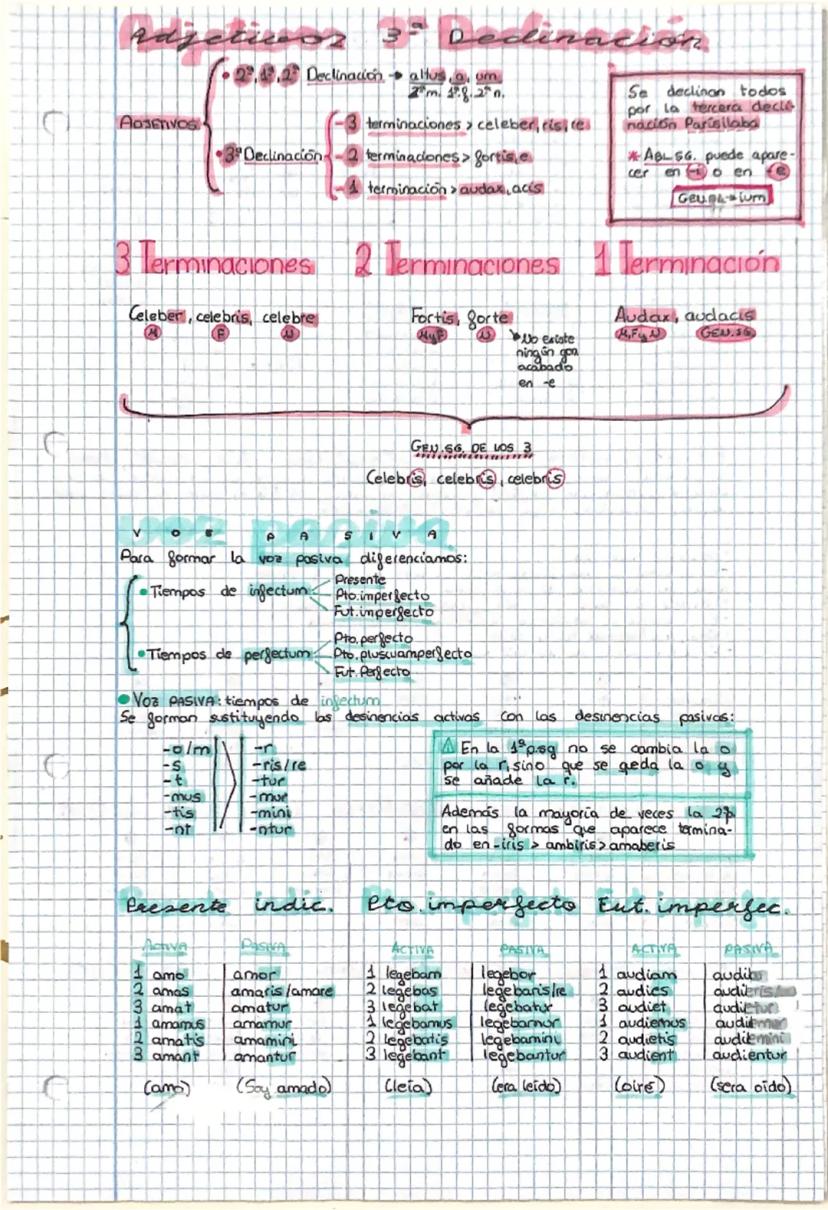 Adjetivos 3ª Declinación
• 2ª, 1ª, 2ª Declinación → altus, a, um
2ªm. 1ªf. 2ªn.
ADJETIVOS
• 3ª Declinación
-3 terminaciones > celeber, ris, re
-2 terminaciones > fortis, e
-1 terminación > audax, acis
Se declinan todos
por la tercera decli-
nación Parisílaba
* ABL SG. puede apare-
cer en -i o en -e
Gen.pl → ium
3 Terminaciones
Celeber, celebris, celebre
M F N
2 Terminaciones
Fortis, forte
MyF N
No existe
ningún
acabado
en -e
1 Terminación
Audax, audacis
M, F y N GEN.SG
GEN.SG. DE LOS 3
Celebris, celebris, celebris
VOZ PASIVA
Para formar la voz pasiva diferenciamos:
• Tiempos de infectum
Presente
Pto. imperfecto
Fut. imperfecto
• Tiempos de perfectum
Pto. perfecto
Pto. pluscuamperfecto
Fut. Perfecto
• VOZ PASIVA: tiempos de infectum
Se forman sustituyendo las desinencias activas con las desinencias pasivas:
-o/m -r
-s -ris/re
-t -tur
-mus -mur
-tis -mini
-nt -ntur
⚠ En la 1ªp.sg no se cambia la o
por la r, sino que se qeda la o y
se añade la r.
Además la mayoría de veces la 2ªp
en las formas que aparece termina-
do en -iris > ambiris > amaberis
Presente indic.
ACTIVA PASIVA
1 amo amor
2 amas amaris/amare
3 amat amatur
1 amamus amamur
2 amatis amamini
3 amant amantur
(amo) (Soy amado)
Pto. imperfecto
ACTIVA PASIVA
1 legebam legebar
2 legebas legebaris/re
3 legebat legebatur
1 legebamus legebamur
2 legebatis legebamini
3 legebant legebantur
(leía) (era leído)
Fut. imperfec.
ACTIVA PASIVA
1 audiam
2 audies
3 audiet
1 audiemus
2 audietis
3 audient audientur
(oiré) (sera oído)